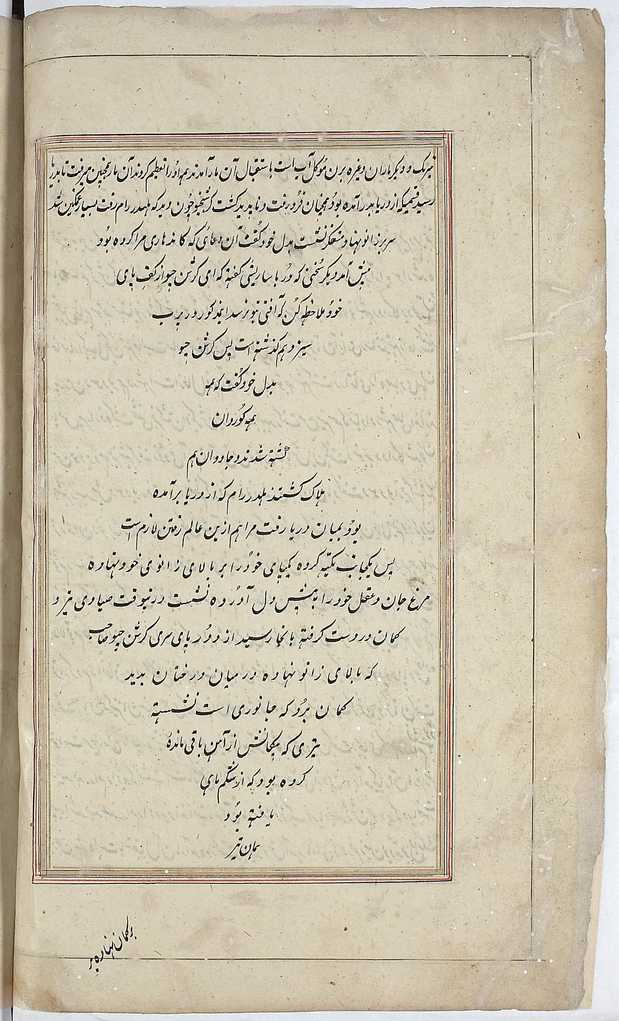 هریک و دیگر ماران وغیره برن موکل آب است باستقبال آن مار آمدند همه اورا تعظیم کردند آن مار همچنین میرفت تا بدریا
رسید فیمیکه از دریا بدر آمده بود همچنان فرو رفت و ناپدید گشت کرشنجیو چون دید که بلهدر رام رفت بسیار غمگین شد
سر بزانو نهاد و متفکر نشست بدل خود گفت آن دعای که کاندهاری مرا کرده بود
پیش آمد دیگر سخنی که درباسا ریشی گفته که ای کرشن جیو از کف پای
خود ملاحظه کن که آفتی بتو نرسد اینمذکور در پرب
سیزدهم گذشته است پس کرشن جیو
بدل خود گفت که همه
همه کوروان
کشته شدند و جادوان هم
هلاک گشتند بلهدر رام که از دریا برآمده
بود بمیان دریا رفت مرا هم ازین عالم رفتن لازم است
پس یکجانب تکیه کرده یکپای خود را بر بالای زانوی خود نهاده
مرغ جان و عقل خود را به پیش دل آورده نشست درینوقت صیادی تیر و
کمان در دست گرفته بانجا رسید از دور پای سری کرشن جیو صاحب
که بالای زانو نهاده در میان درختان بدید
گمان برد که جانوری است نشسته
تیری که پیکانش از آهن باقی مانده
کرده بود که از شکم ماهی
یافته بود
همان تیر
بر کمان نهاده بر